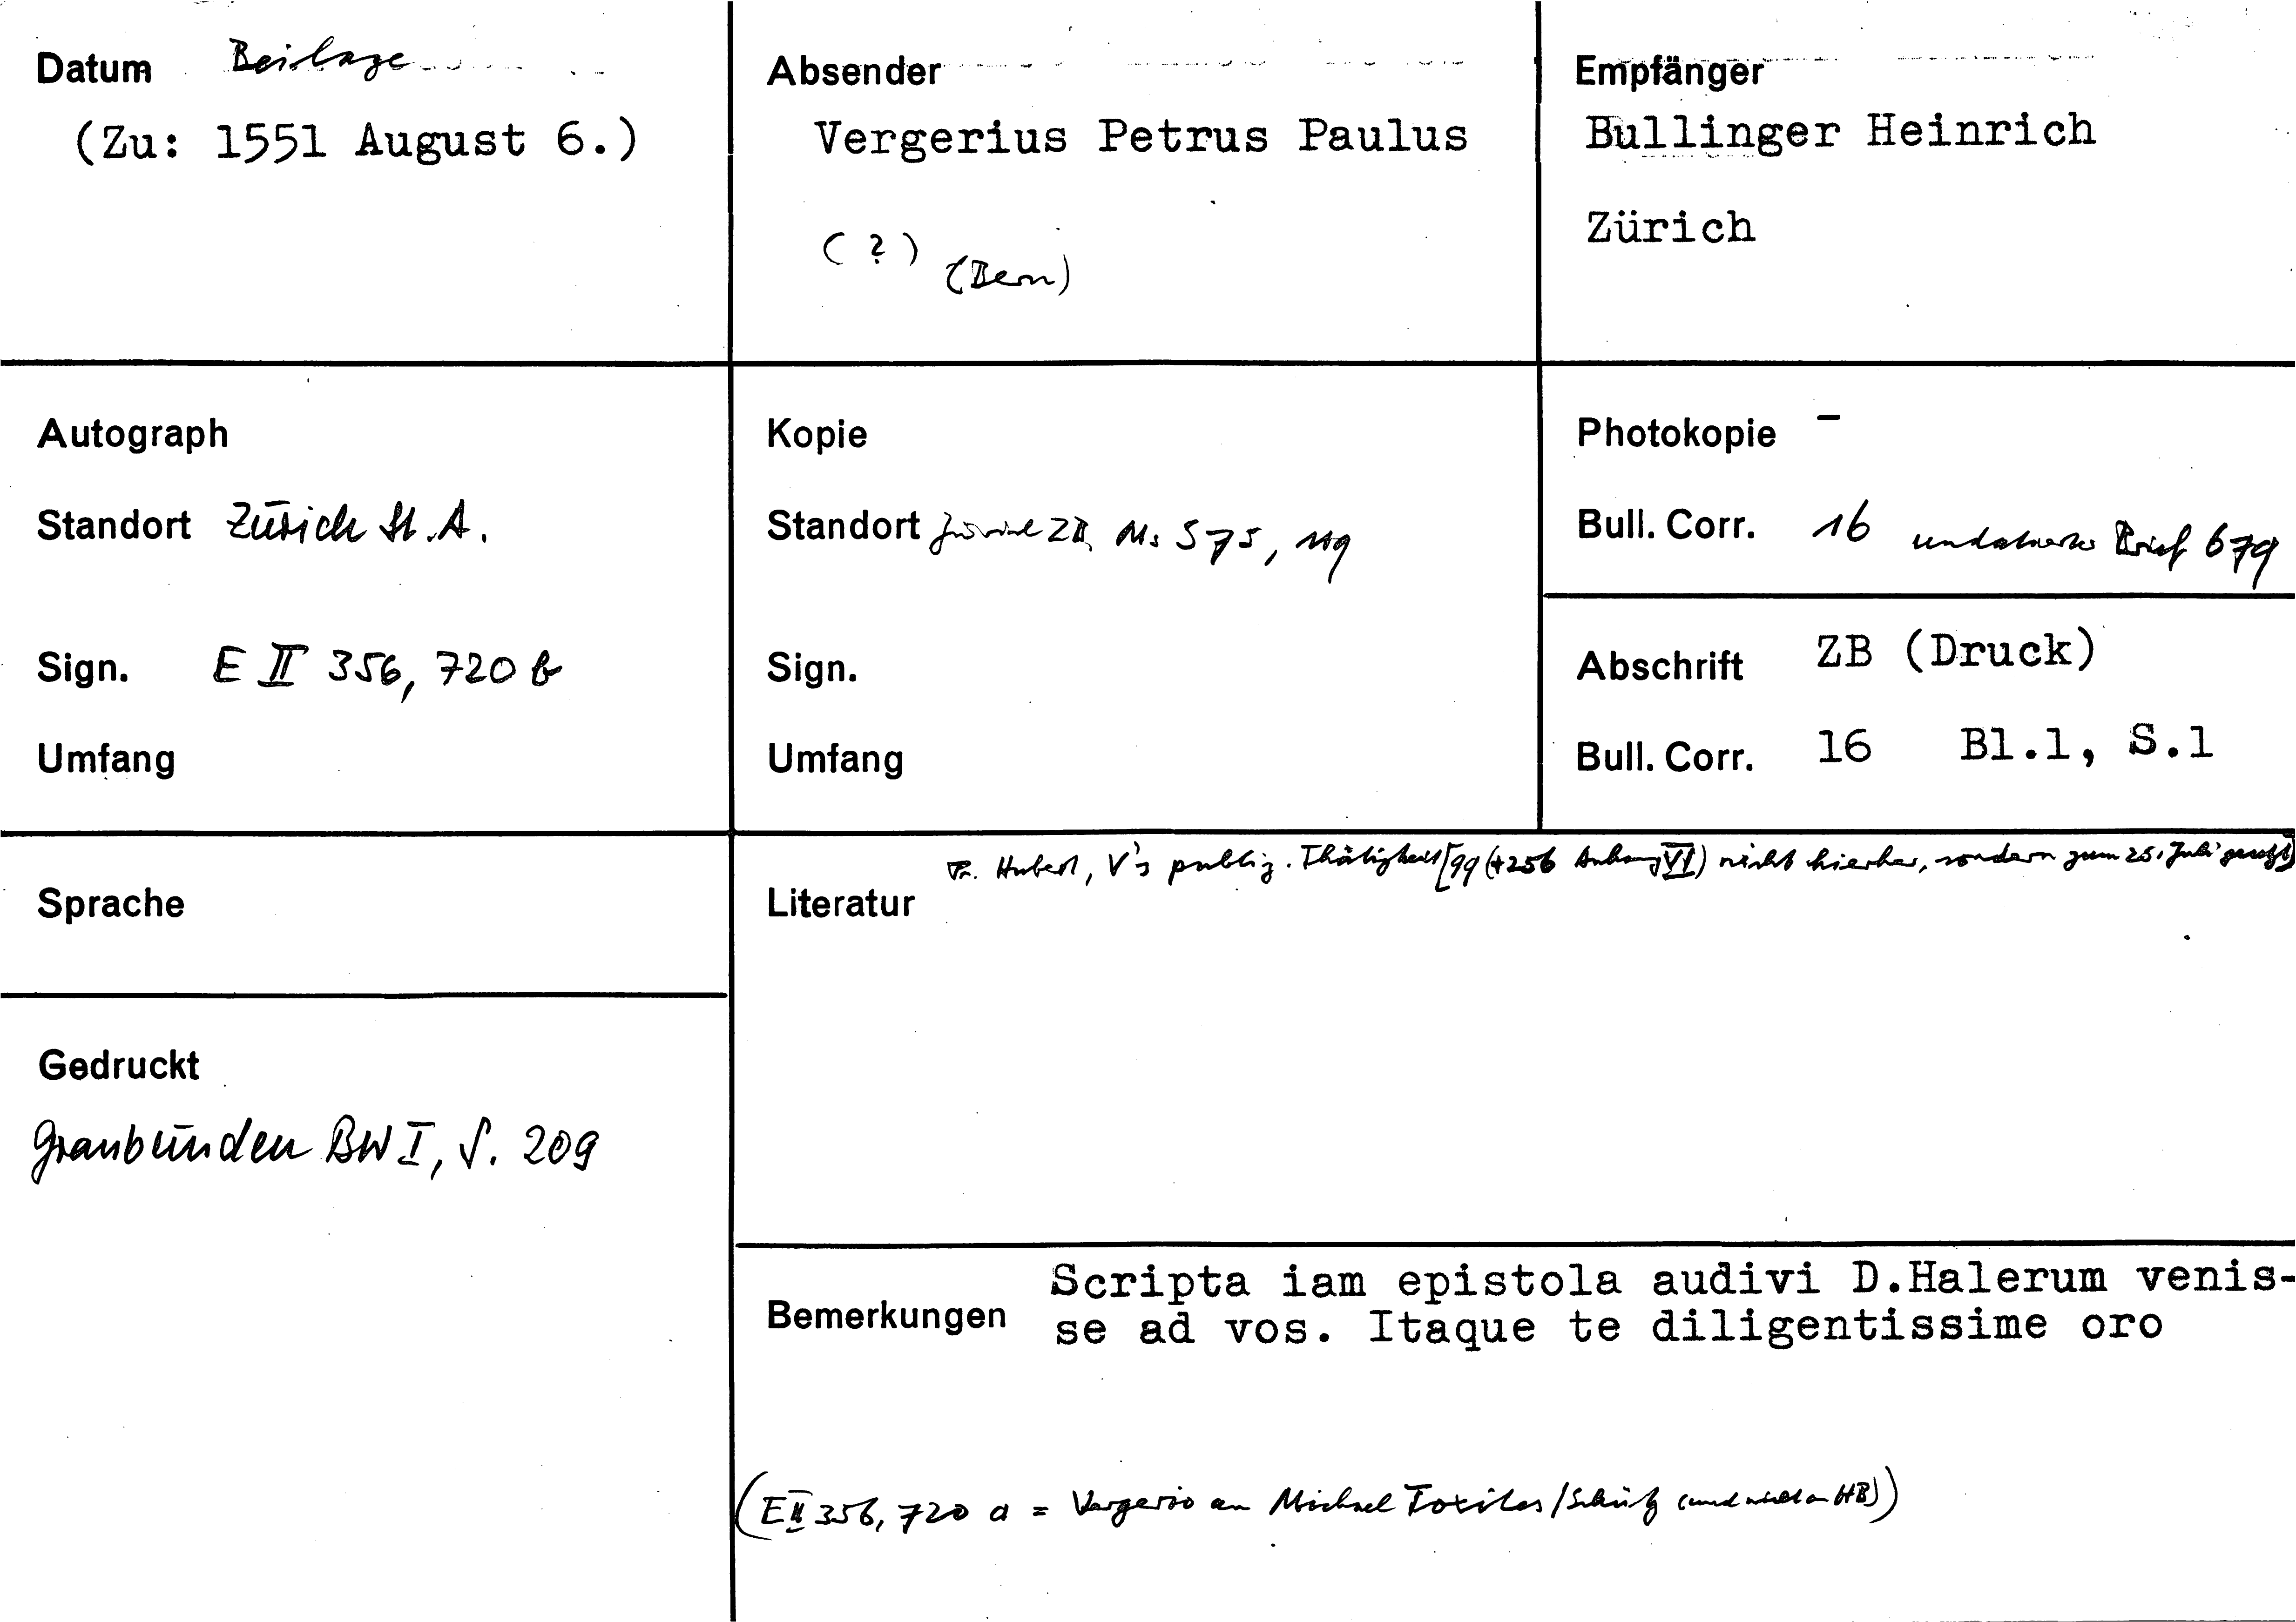 Datum Beilage
(Zu: 1551 August 6.)
Absender
Vergerius Petrus Paulus
(?) (Bern)
Empfänger
Bullinger Heinrich
Zürich
Autograph
Standort Zürich St.A.
Sign. E II 356, 720 b
Umfang
Kopie
Standort Zürich ZB, Ms S 75, 119
Sign.
Umfang
Photokopie –
Bull. Corr. 16 undatierter Brief 679
Abschrift ZB (Druck)
Bull. Corr. 16 Bl.1, S.1
Sprache
Gedruckt
Graubünden BW I, S. 209
Literatur Fr. Hubert, V's publiz. Thätigkeit [99 (+256 Anhang VI) nicht hierher, sondern zum 25. Juli gesetzt]
Bemerkungen Scripta iam epistola audivi D.Halerum venis-
se ad vos. Itaque te diligentissime oro
(E II 356, 720 a = Vergerio an Michael Toxites/Schütz (und nicht an HB))